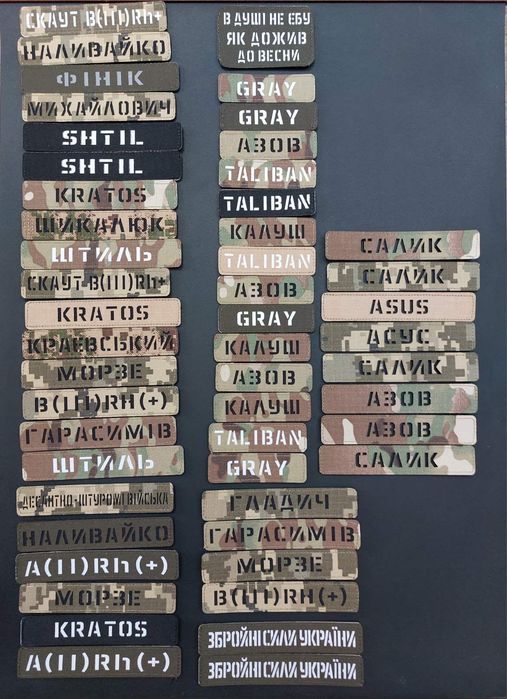 СКАУТ B(III)Rh+
НАЛИВАЙКО
ФІНІК
МИХАЙЛОВИЧ
SHTIL
SHTIL
KRATOS
ШИКАЛЮК
ШТИЛЬ
СКАУТ B(III)Rh+
KRATOS
КРАЕВСЬКИЙ
МОРЗЕ
B(III)RH(+)
ГАРАСИМІВ
ШТИЛЬ
ДЕСАНТНО-ШТУРМОВІ ВІЙСЬКА
НАЛИВАЙКО
A(II)Rh(+)
МОРЗЕ
KRATOS
A(II)Rh(+)
В ДУШІ НЕ ЕБУ
ЯК ДОЖИВ
ДО ВЕСНИ
GRAY
GRAY
АЗОВ
TALIBAN
TALIBAN
КАЛУШ
TALIBAN
АЗОВ
GRAY
КАЛУШ
АЗОВ
КАЛУШ
TALIBAN
GRAY
ГЛАДИЧ
ГАРАСИМІВ
МОРЗЕ
B(III)RH(+)
ЗБРОЙНІ СИЛИ УКРАЇНИ
ЗБРОЙНІ СИЛИ УКРАЇНИ
САЛИК
САЛИК
ASUS
АСУС
САЛИК
АЗОВ
АЗОВ
САЛИК